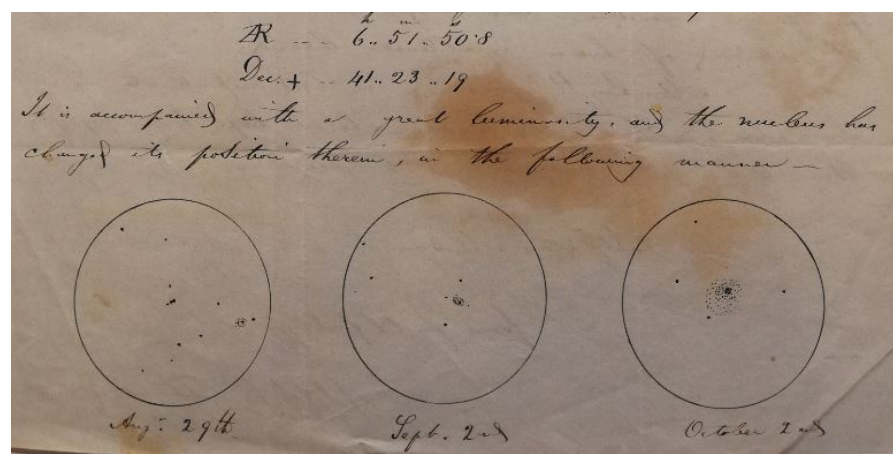 h m s
AR ... 6.. 51.. 50.8
Dec. + .. 41.. 23.. 19
It is accompanied with a great luminosity, and the nucleus has
changed its position therein, in the following manner —
Augt. 29th.
Sept. 2nd
October 2nd